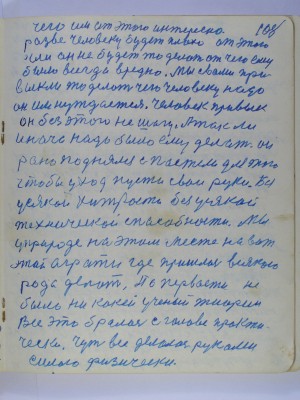 108
чего им от этого интересно
разве человеку будет только от этого
или он не будет то делат от чего ему
было всегда вредно. Мы сами при
выкли то делат чего человеку надо
он им нуждается. Человек привык
он без этого не шагу. А так ли
иначе надо было ему делат он
рано поднялся с постели для того
чтобы у ход пусти свои руки. Без
усякой хитрости без усякой
технической способности. Мы
у природе на этом месте на вот
этой где пришлос всякого
рода делат. По первости не
было ни какой ученый теории
Все это бралос с голове практи
чески. Чут все делалос руками
силою физически.